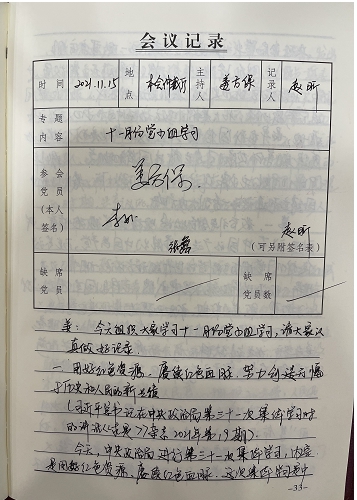 会议记录
时间 2021.11.15 地点 主持人 姜方保 记录人 赵昕
专题内容 十一月份党小组学习
参会党员(本人签名) 姜方保
李
张磊 赵昕
(可另附签名表)
缺席党员 缺席党员数
姜: 今天组织大家学习十一月份党小组学习,请大家认
真做好记录
一、用好红色资源,赓续红色血脉,努力创造无愧
于历史和人民的新业绩
(习近平总书记在中央政治局第三十一次集体学习时
的讲话《求是》杂志2021年第19期).
今天,中央政治局进行第三十一次集体学习,内容
是用好红色资源、赓续红色血脉。这次集体学习是中
-33-